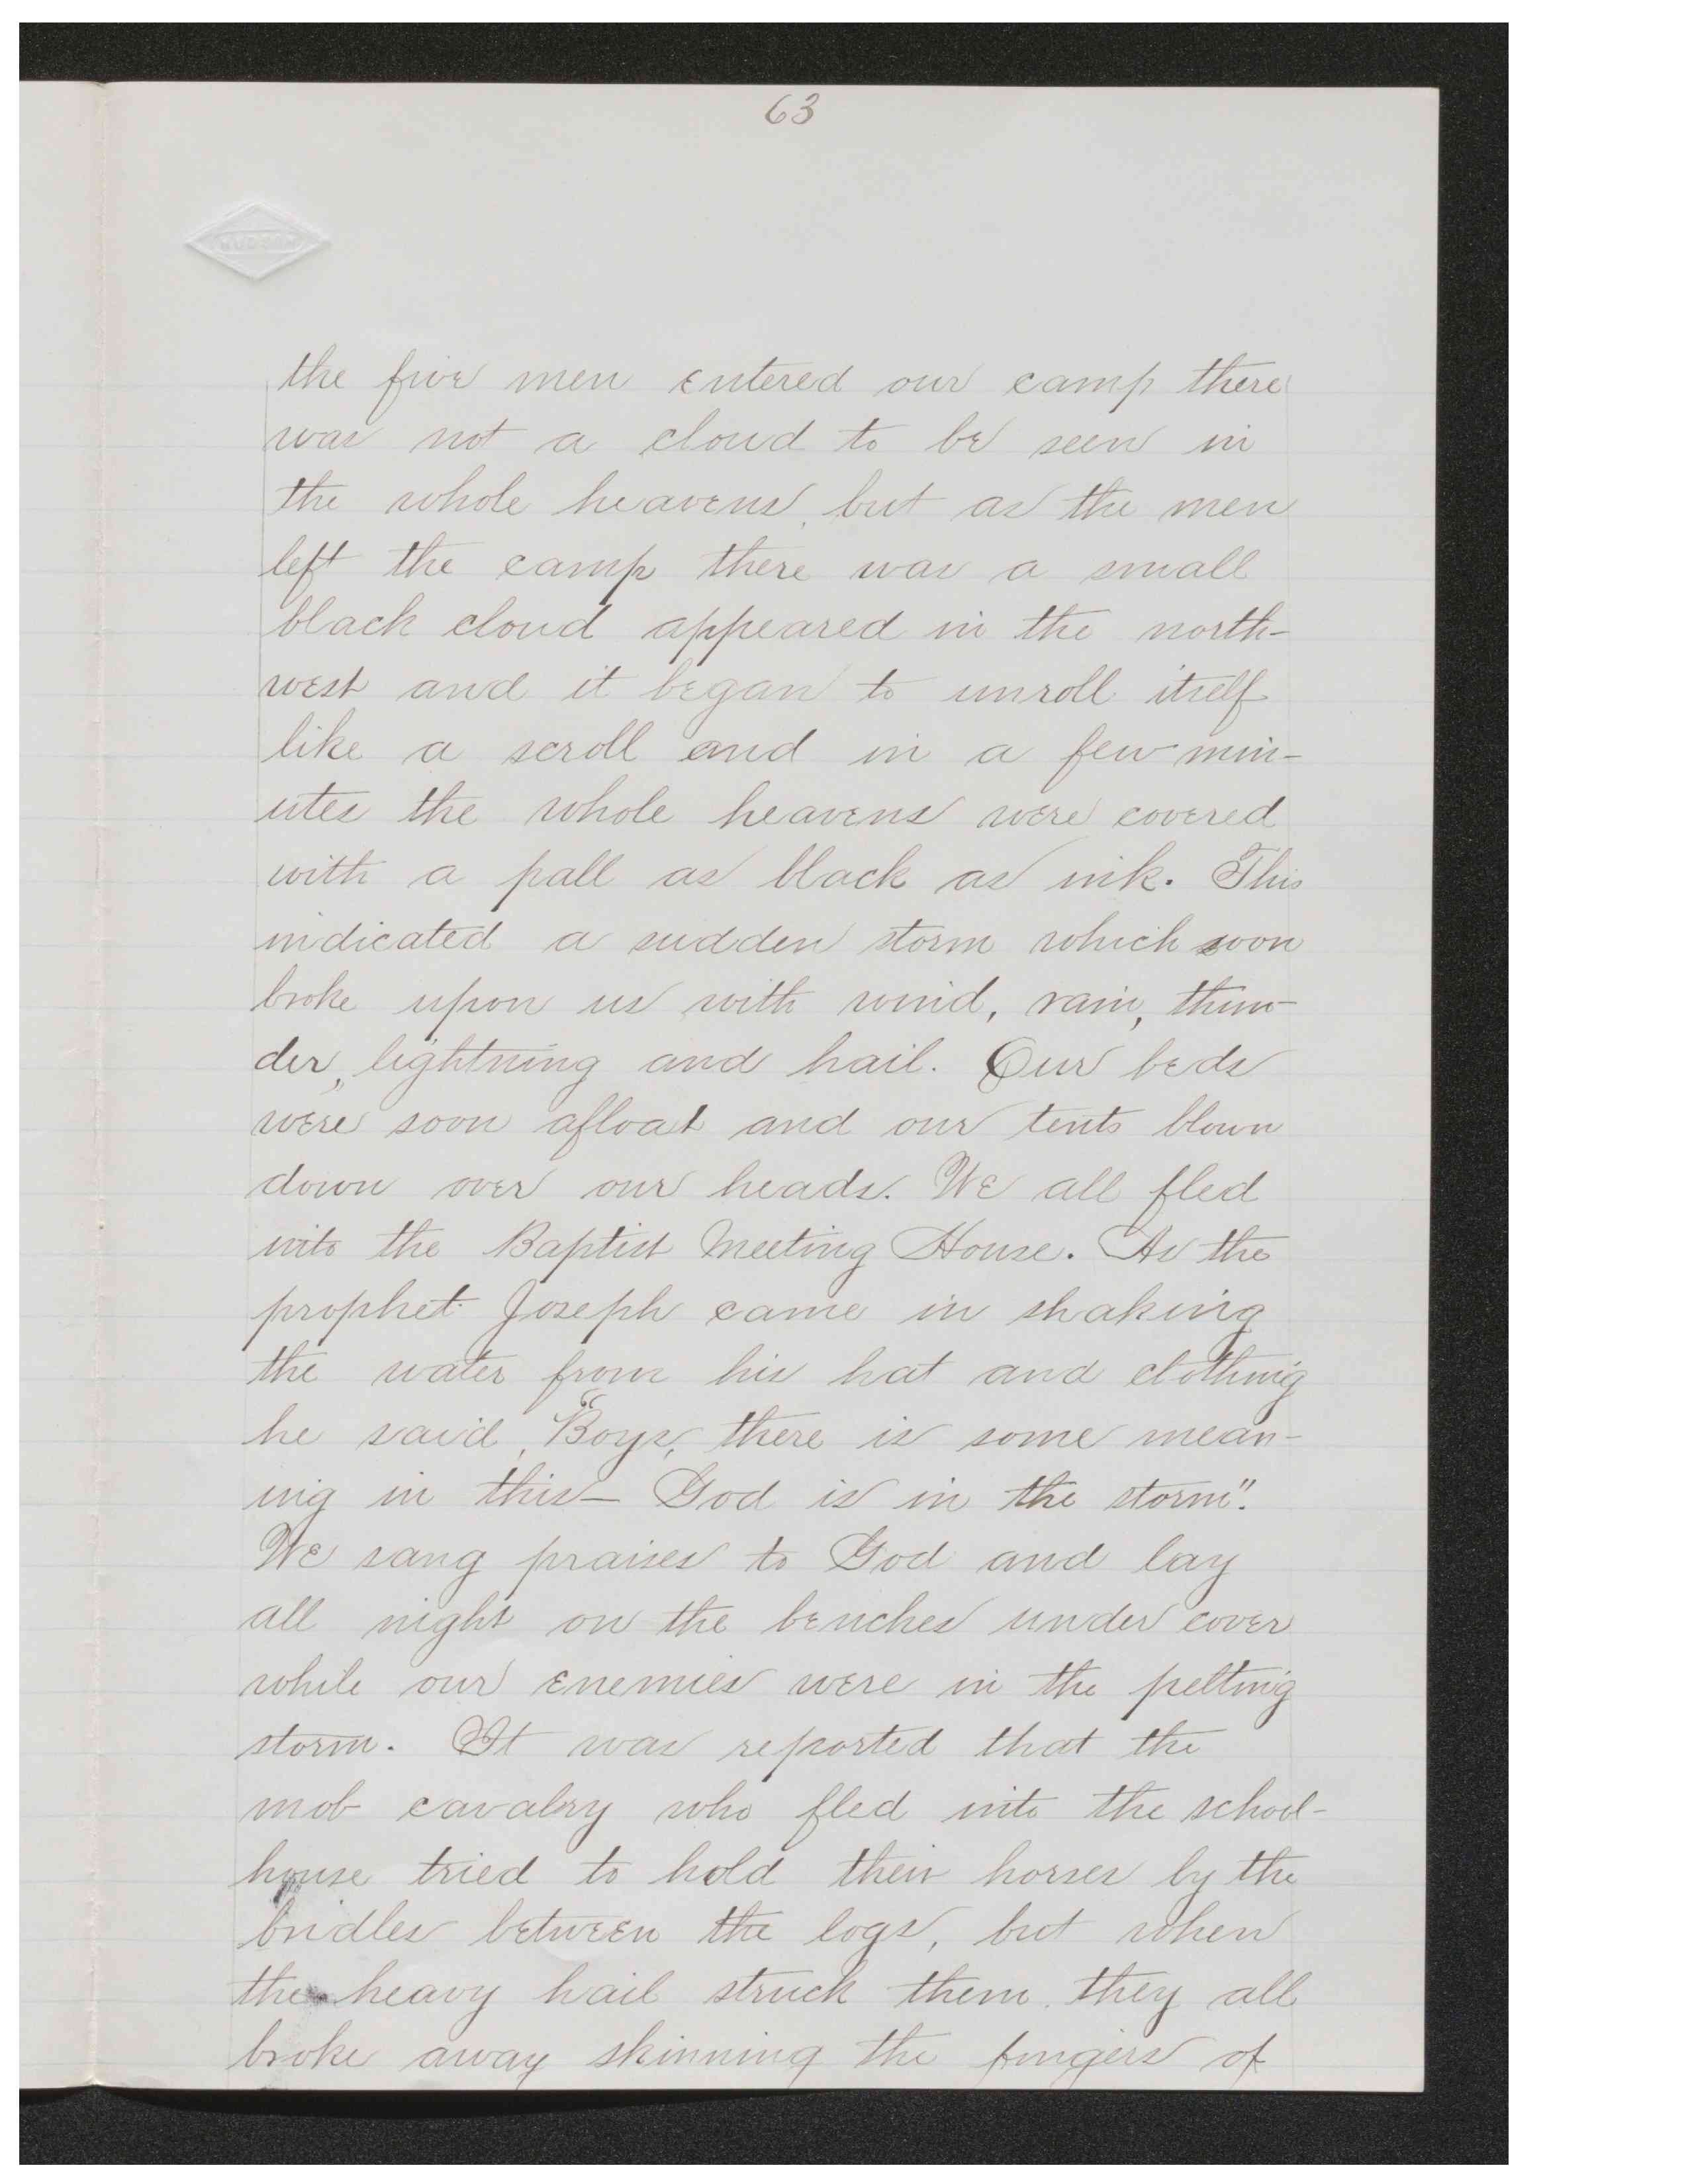 63
the five men entered our camp there
was not a cloud to be seen in
the whole heavens, but as the men
left the camp there was a small
black cloud appeared in the north-
west and it began to unroll itself
like a scroll and in a few min-
utes the whole heavens were covered
with a pall as black as ink. This
indicated a sudden storm which soon
broke upon us with wind, rain, thun-
der, lightning and hail. Our beds
were soon afloat and our tents blown
down over our heads. We all fled
into the Baptist Meeting House. As the
prophet Joseph came in shaking
the water from his hat and clothing
he said, "Boys, there is some mean-
ing in this— God is in the storm".
We sang praises to God and lay
all night on the benches under cover
while our enemies were in the pelting
storm. It was reported that the
mob cavalry who fled into the school-
house tried to hold their horses by the
bridles between the logs, but when
the heavy hail struck them, they all
broke away skinning the fingers of